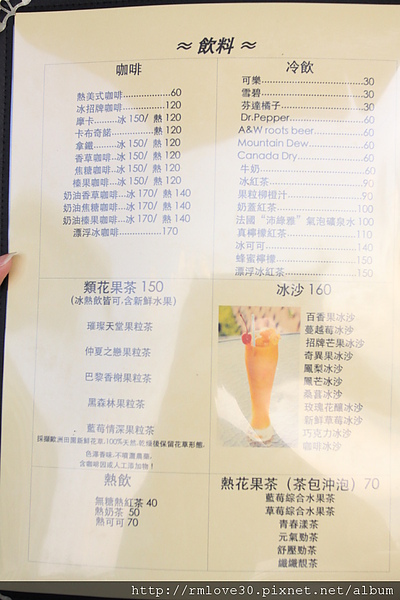 ≈ 飲料 ≈
咖啡
熱美式咖啡..................60
冰招牌咖啡................120
摩卡.........冰 150/ 熱 120
卡布奇諾................熱 120
拿鐵.........冰 150/ 熱 120
香草咖啡...冰 150/ 熱 120
焦糖咖啡...冰 150/ 熱 120
榛果咖啡...冰 150/ 熱 120
奶油香草咖啡...冰 170/ 熱 140
奶油焦糖咖啡...冰 170/ 熱 140
奶油榛果咖啡...冰 170/ 熱 140
漂浮冰咖啡................170
冷飲
可樂.............................30
雪碧.............................30
芬達橘子........................30
Dr.Pepper.......................60
A&W roots beer...............60
Mountain Dew.................60
Canada Dry....................60
牛奶.............................60
冰紅茶..........................90
果粒柳橙汁....................90
奶蓋紅茶......................100
法國“沛綠雅”氣泡礦泉水100
真檸檬紅茶...................110
冰可可.........................140
蜂蜜檸檬......................150
漂浮冰紅茶...................150
類花果茶 150
(冰熱飲皆可,含新鮮水果)
璀璨天堂果粒茶
仲夏之戀果粒茶
巴黎香榭果粒茶
黑森林果粒茶
藍莓情深果粒茶
採擷歐洲田園最新鮮花草,100%天然,乾燥後保留花草形態,
色澤香味,不噴灑農藥,
含咖啡因或人工添加物!
冰沙 160
百香果冰沙
蔓越莓冰沙
招牌芒果冰沙
奇異果冰沙
鳳梨冰沙
黑芒冰沙
桑葚冰沙
玫瑰花釀冰沙
新鮮草莓冰沙
巧克力冰沙
咖啡冰沙
熱飲
無糖熱紅茶 40
熱奶茶 50
熱可可 70
熱花果茶（茶包沖泡）70
藍莓綜合水果茶
草莓綜合水果茶
青春漾茶
元氣勁茶
舒壓勁茶
纖纖靚茶
http://rmlove30.pixnet.net/album